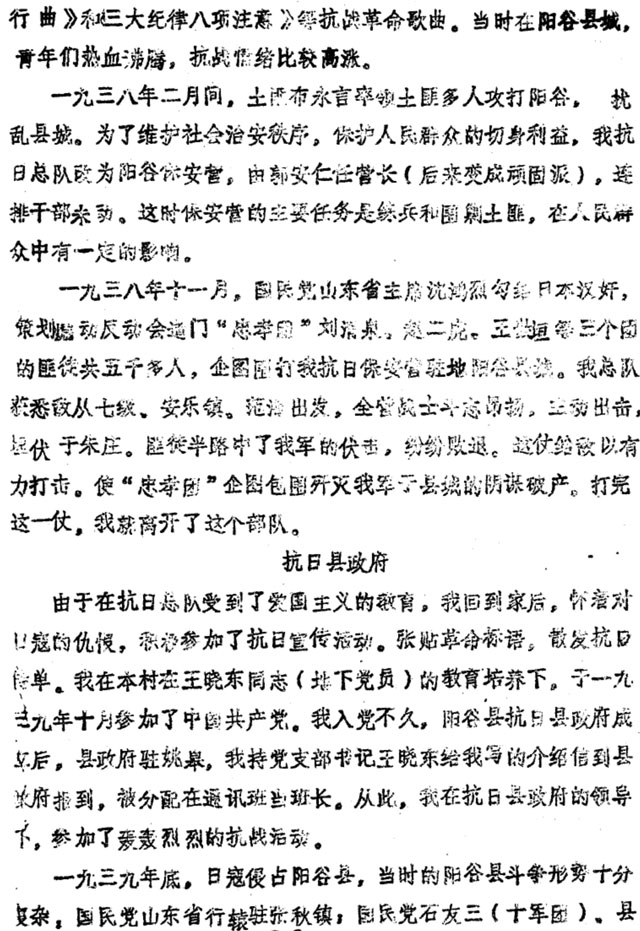 行曲》和《三大纪律八项注意》等抗战革命歌曲。当时在阳谷县城，
青年们热血沸腾，抗战情绪比较高涨。
一九三八年二月间，土匪布永言率领土匪多人攻打阳谷，扰
乱县城。为了维护社会治安秩序，保护人民群众的切身利益，我抗
日总队改为阳谷保安营，由郭安仁任营长（后来变成顽固派），连
排干部未动。这时保安营的主要任务是练兵和围剿土匪，在人民群
众中有一定的影响。
一九三八年十一月，国民党山东省主席沈鸿烈勾结日本汉奸，
策划鼓动反动会道门“忠孝团”刘清泉、赵二虎、王世垣等三个团
的匪徒共五千多人，企图围打我抗日保安营驻地阳谷县城。我总队
获悉敌从七级、安乐镇、范海出发，全营战士斗志昂扬，主动出击，
埋伏于朱庄。匪徒半路中了我军的伏击，纷纷败退。这仗给敌以有
力打击。使“忠孝团”企图包围歼灭我军于县城的阴谋破产。打完
这一仗，我就离开了这个部队。
抗日县政府
由于在抗日总队受到了爱国主义的教育，我回到家后，怀着对
日寇的仇恨，积极参加了抗日宣传活动。张贴革命标语，散发抗日
传单。我在本村在王晓东同志（地下党员）的教育培养下，于一九
三九年十月参加了中国共产党。我入党不久，阳谷县抗日县政府成
立后，县政府驻姚皋，我持党支部书记王晓东给我写的介绍信到县
政府报到，被分配在通讯班当班长。从此，我在抗日县政府的领导
下，参加了轰轰烈烈的抗战活动。
一九三九年底，日寇侵占阳谷县，当时的阳谷县斗争形势十分
复杂，国民党山东省行辕驻张秋镇；国民党石友三（十军团）、县